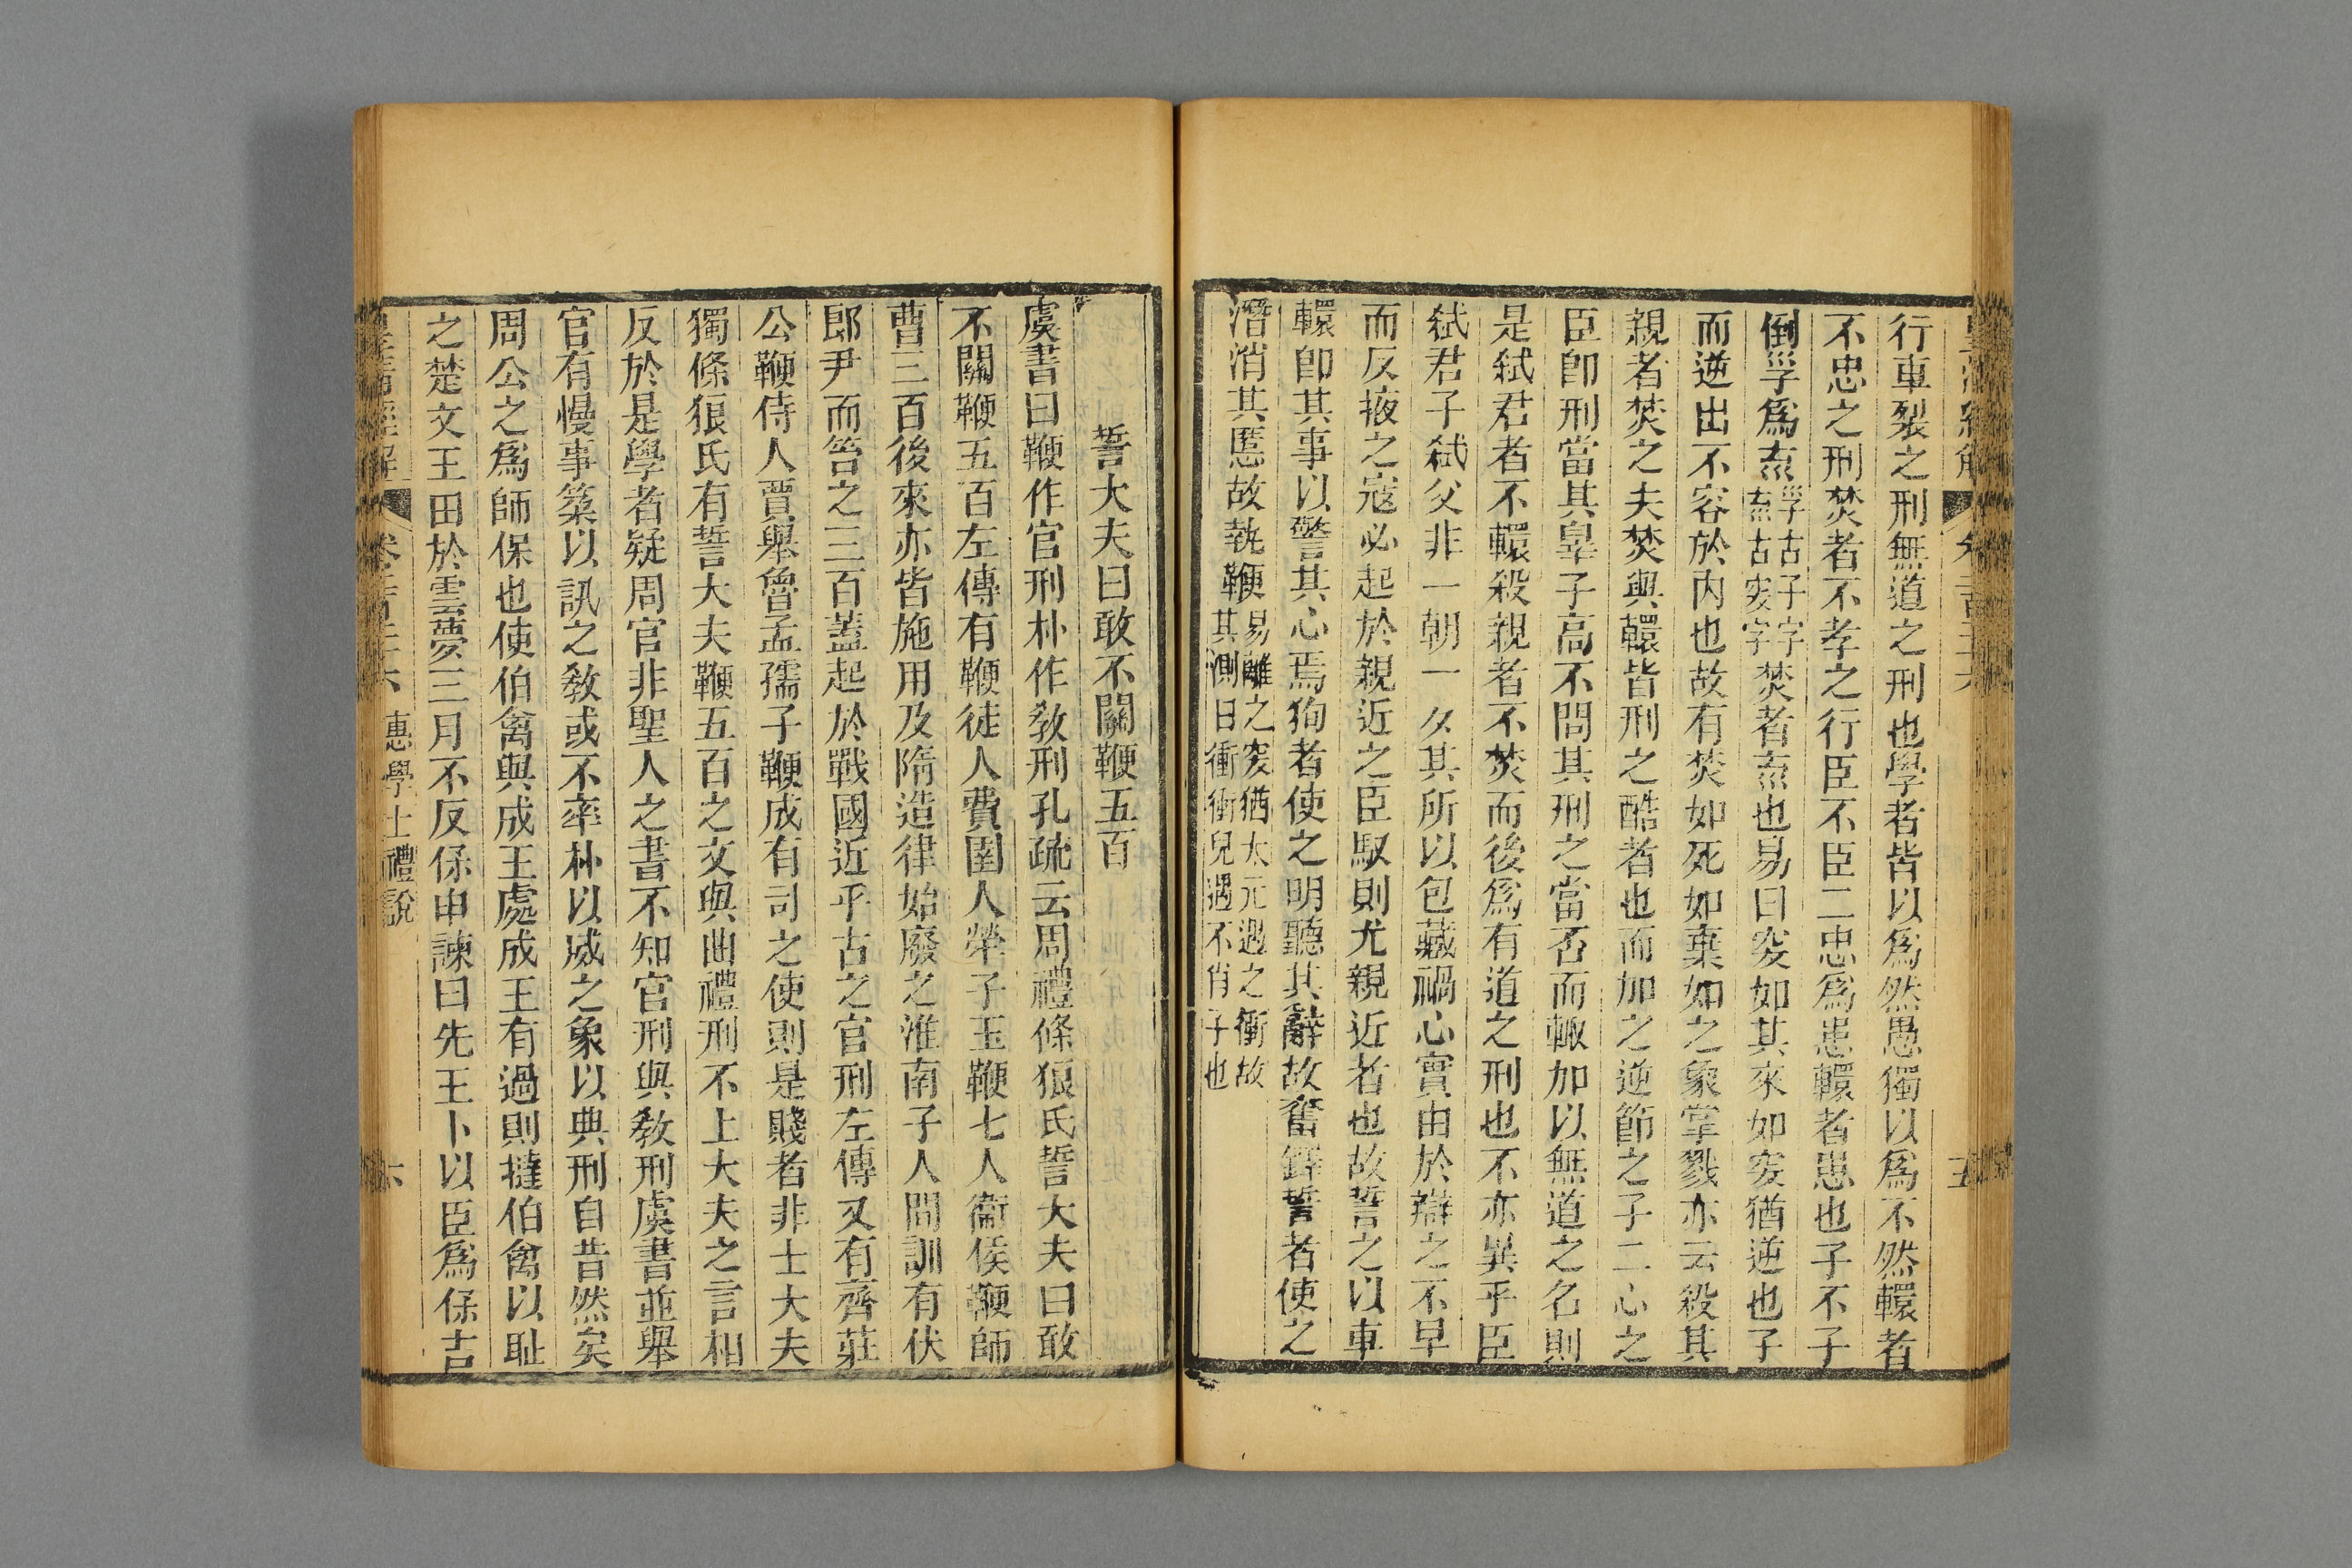 行車裂之刑無道之刑也學者皆以爲然愚獨以爲不然轘者
不忠之刑焚者不孝之行臣不臣二忠爲患轘者患也子不子
倒孚爲𠫓孚古子字𠫓古突字焚者𠫓也易曰突如其來如突猶逆也子
而逆出不容於內也故有焚如死如棄如之象掌戮亦云殺其
親者焚之夫焚與轘皆刑之酷者也而加之逆節之子二心之
臣卽刑當其辠子高不問其刑之當否而輙加以無道之名則
是弒君者不轘殺親者不焚而後爲有道之刑也不亦異乎臣
弒君子弒父非一朝一夕其所以包藏禍心實由於辯之不早
而反掖之寇必起於親近之臣馭則尤親近者也故誓之以車
轘卽其事以警其心焉狥者使之明聽其辭故奮鐸誓者使之
潛消其慝故執鞭易離之突猶太元遇之衝故其測曰衝衝兒遇不肖子也
誓大夫曰敢不關鞭五百
虞書曰鞭作官刑朴作敎刑孔疏云周禮條狼氏誓大夫曰敢
不關鞭五百左傳有鞭徒人費圉人犖子玉鞭七人衞侯鞭師
曹三百後來亦皆施用及隋造律始廢之淮南子人間訓有伏
郎尹而笞之三百蓋起於戰國近乎古之官刑左傳又有齊莊
公鞭侍人賈舉魯孟孺子鞭成有司之使則是賤者非士大夫
獨條狼氏有誓大夫鞭五百之文與曲禮刑不上大夫之言相
反於是學者疑周官非聖人之書不知官刑與敎刑虞書並舉
官有慢事築以訊之敎或不率朴以威之象以典刑自昔然矣
周公之爲師保也使伯禽與成王處成王有過則撻伯禽以耻
之楚文王田於雲夢三月不反保申諫曰先王卜以臣爲保吉
皇淸經解
卷二百二十六
惠學士禮說
六